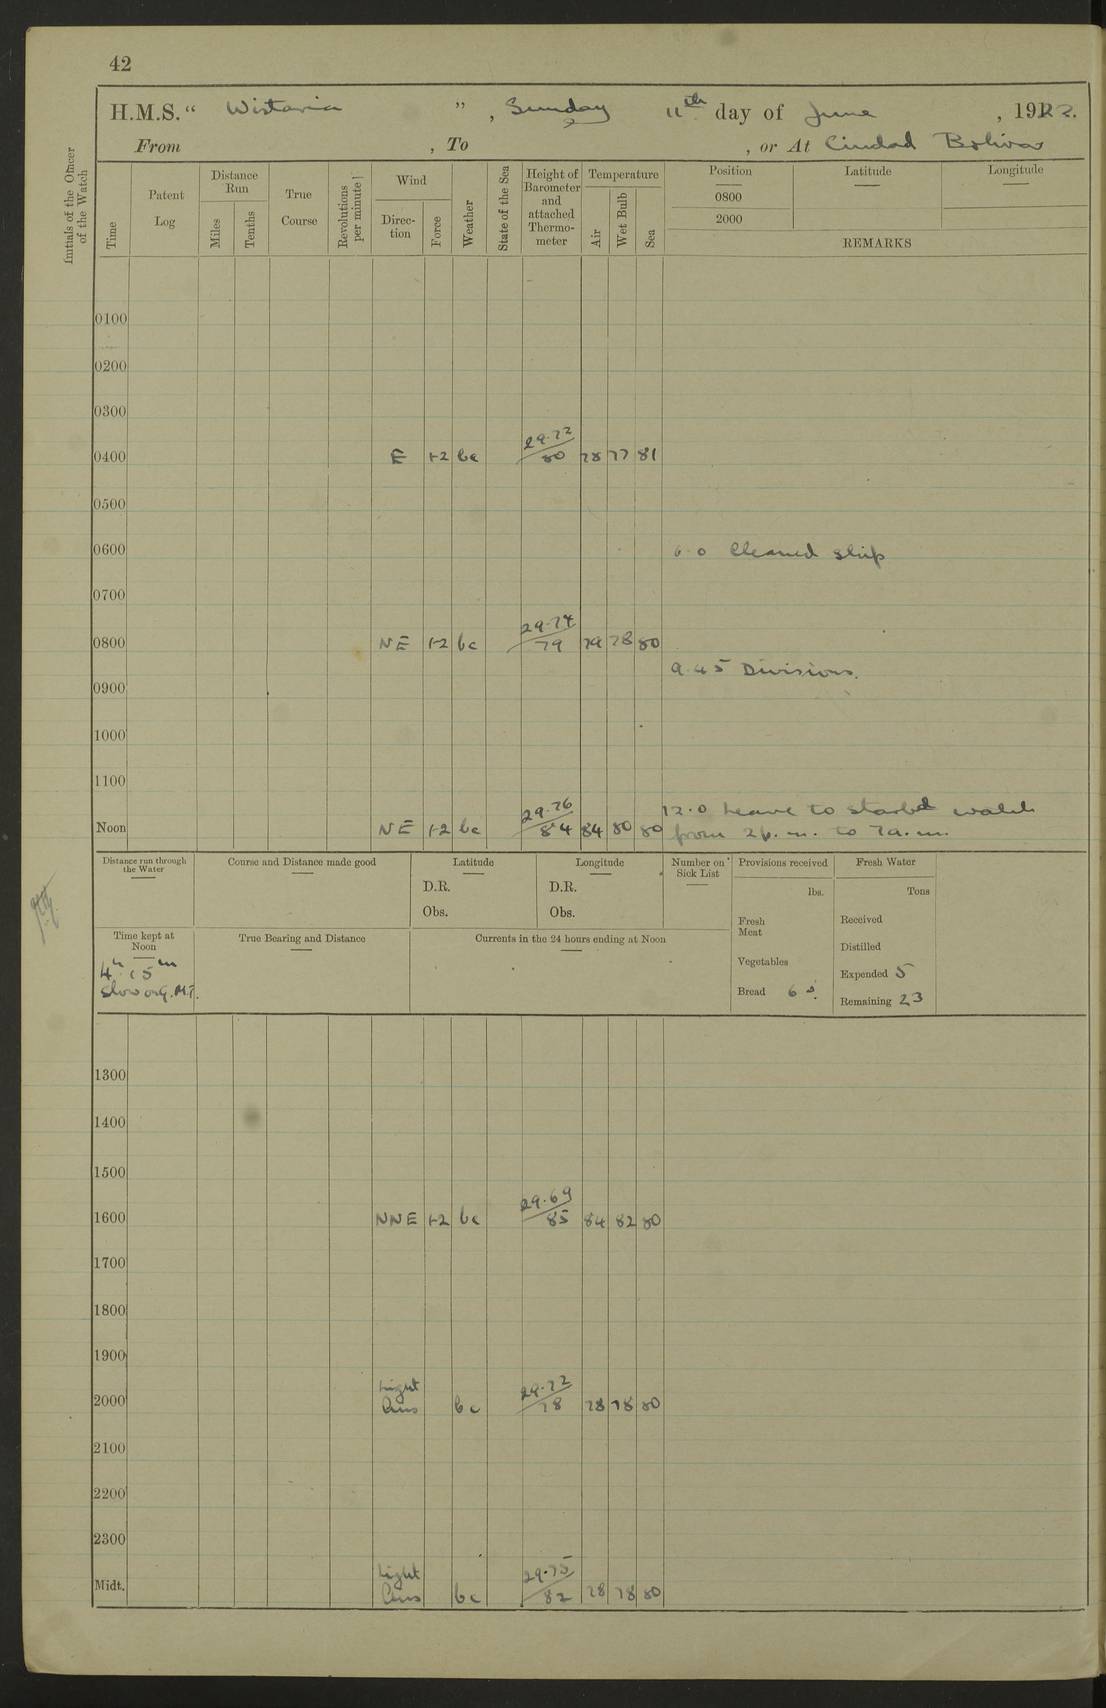 42
H.M.S. “ Wistaria ” , Sunday 11th day of June , 1922.
From , To , or At Ciudad Bolivar
Initials of the Officer of the Watch
Time
Patent Log
Distance Run
Miles
Tenths
True Course
Revolutions per minute
Wind
Direc-tion
Force
Weather
State of the Sea
Height of Barometer and attached Thermo-meter
Temperature
Air
Wet Bulb
Sea
Position
0800
2000
Latitude
Longitude
REMARKS
0100
0200
0300
0400 E 1-2 bc 29.72/80 78 77 81
0500
0600 6.0 Cleaned ship
0700
0800 NE 1-2 bc 29.74/79 79 78 80
9.45 Divisions.
0900
1000
1100
12.0 Leave to starbd watch
Noon NE 1-2 bc 29.76/84 84 80 80 from 2 p.m. to 7 a.m.
Distance run through the Water
Course and Distance made good
Latitude
D.R.
Obs.
Longitude
D.R.
Obs.
Number on Sick List
Provisions received
lbs.
Fresh Meat
Vegetables
Bread 65
Fresh Water
Tons
Received
Distilled
Expended 5
Remaining 23
Time kept at Noon
4h 15m
Slow on G.M.T.
True Bearing and Distance
Currents in the 24 hours ending at Noon
1300
1400
1500
1600 NNE 1-2 bc 29.69/85 84 82 80
1700
1800
1900
2000 Light Airs bc 29.72/78 78 78 80
2100
2200
2300
Midt. Light Airs bc 29.75/82 78 78 80